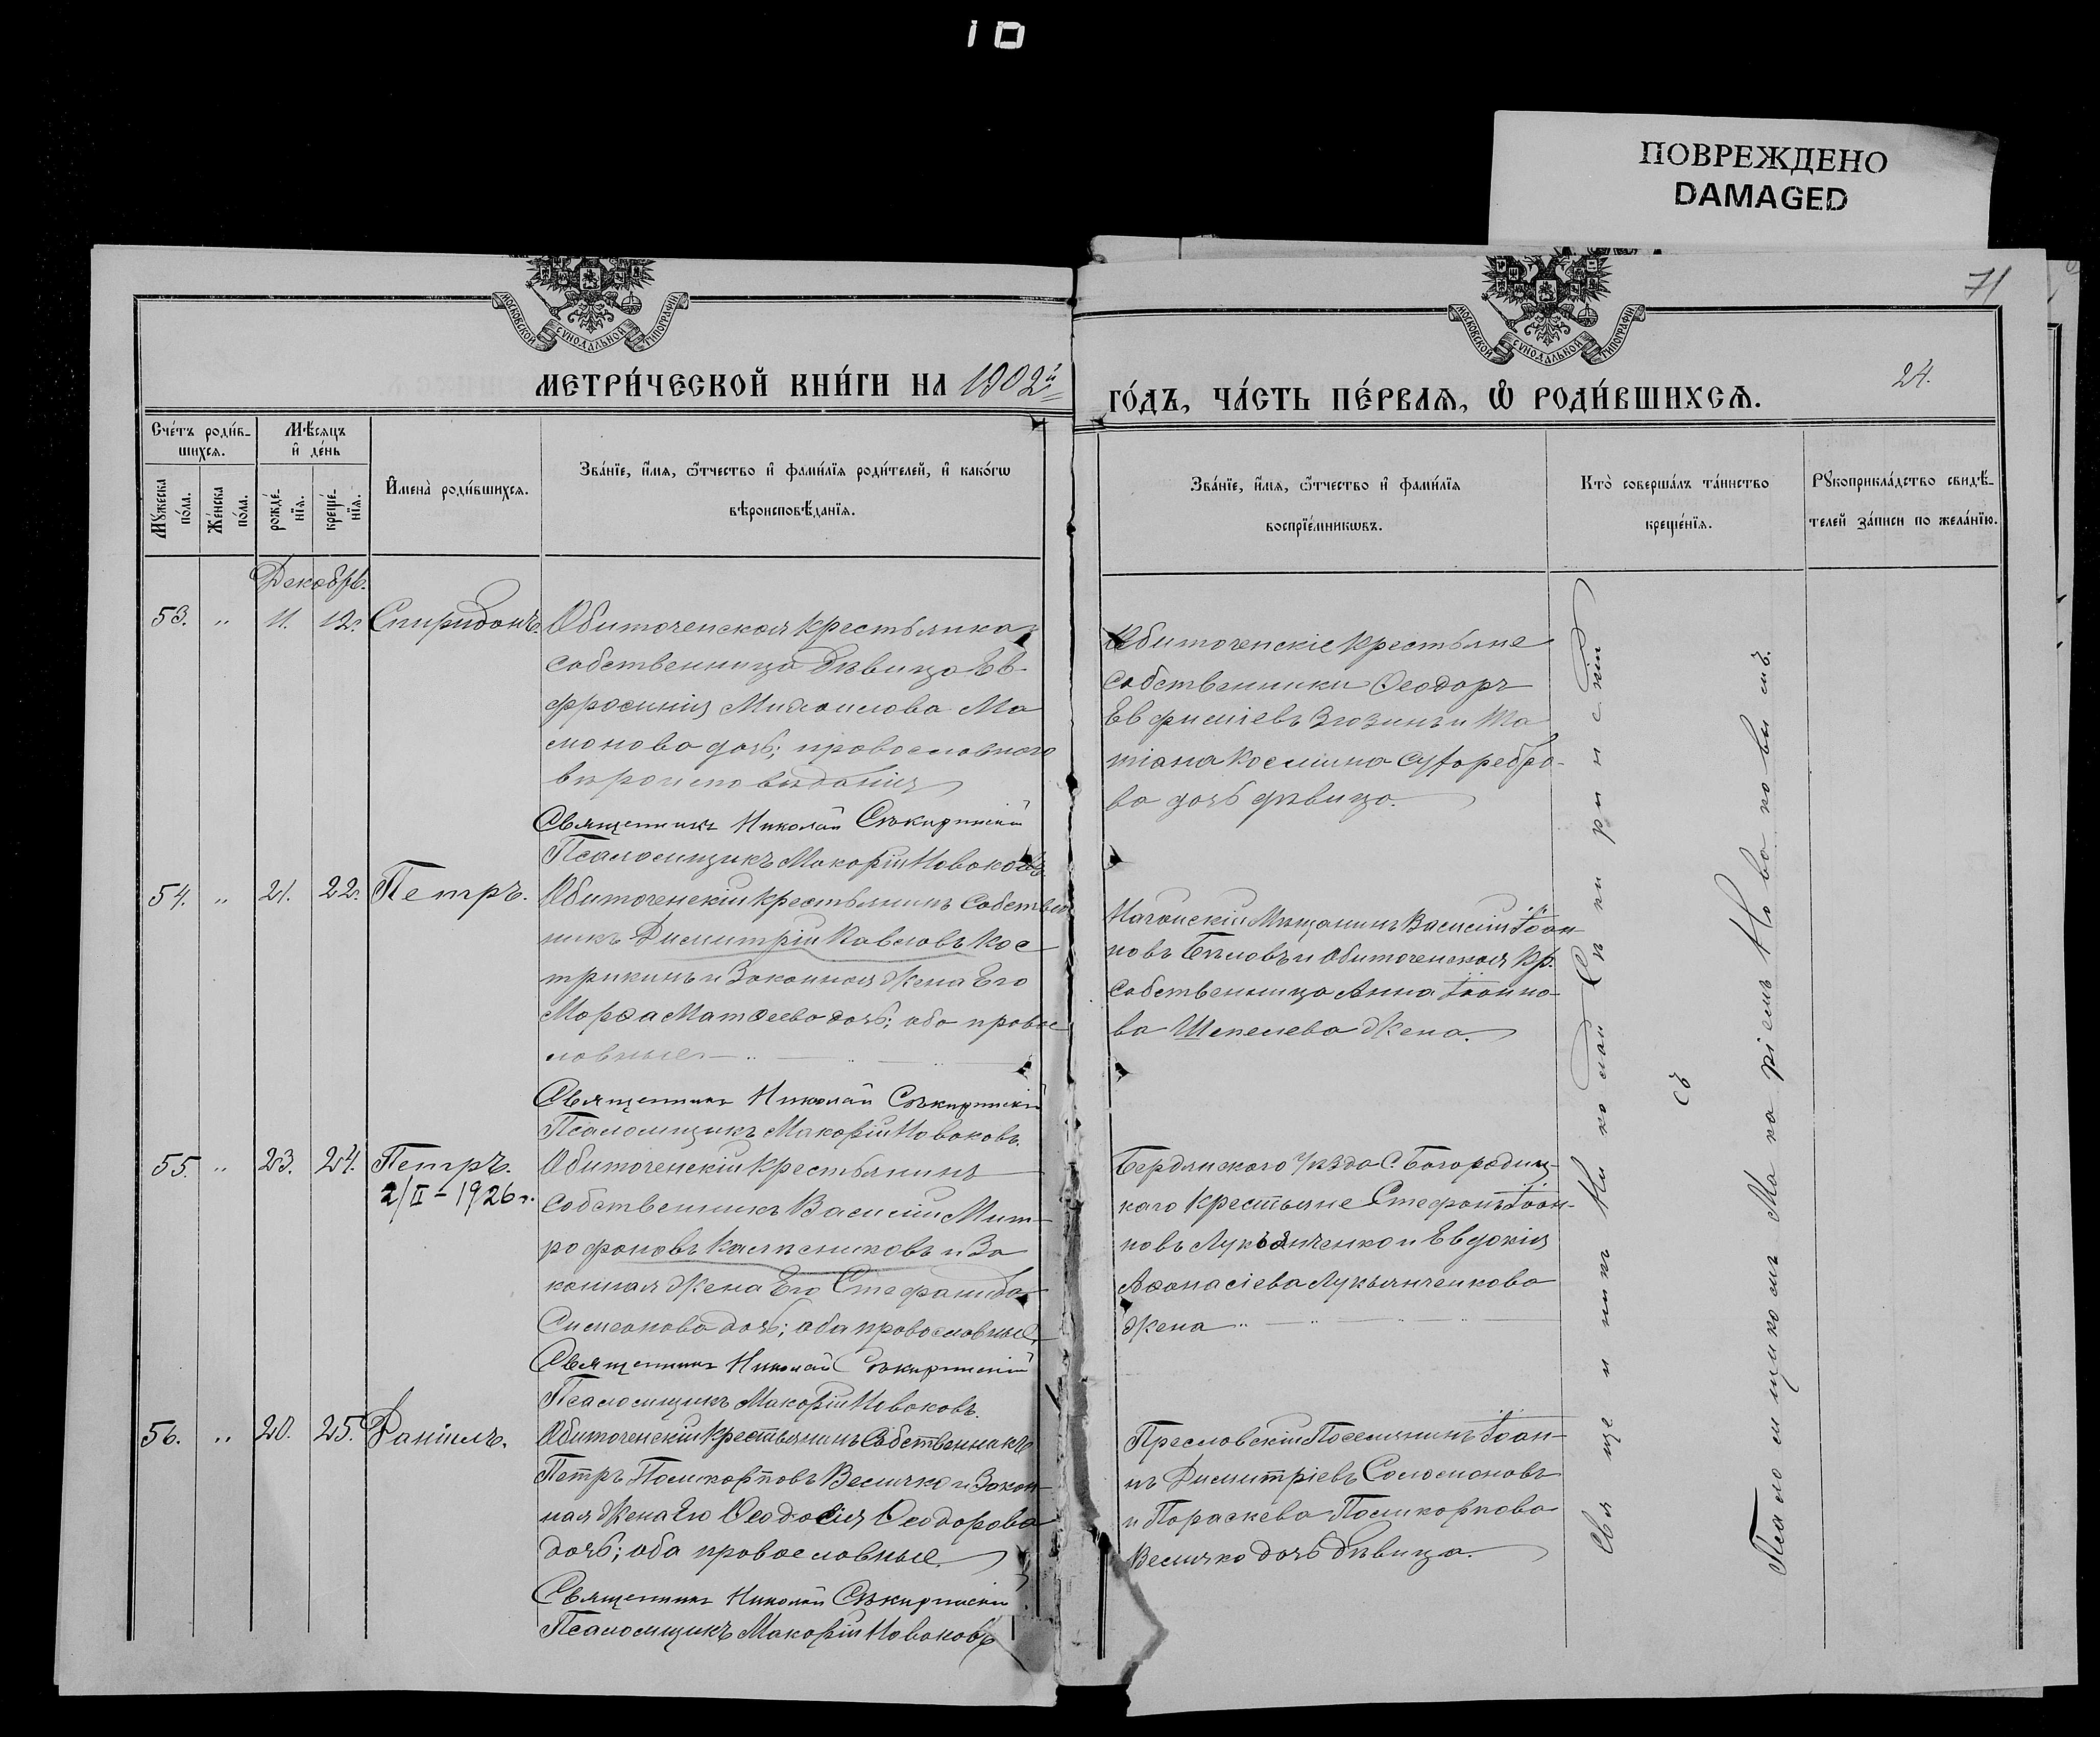 ПОВРЕЖДЕНО
DAMAGED
71
24.
МОСКОВСКОЙ СУНОДАЛЬНОЙ ТИПОГРАФІИ
МОСКОВСКОЙ СУНОДАЛЬНОЙ ТИПОГРАФІИ
МЕТРИ́ЧЕСКОЙ КНИ́ГИ НА 1902й
ГО́ДЪ, ЧА́СТЬ ПЕ́РВАЯ, Ѽ РОДИ́ВШИХСЯ.
Сче́тъ роди́в-
шихся.
Мꙋ́жеска по́ла.
Же́нска по́ла.
Мѣ́сяцъ и҆ де́нь
рожде́-
нїя.
креще́-
нїя.
И҆мена̀ роди́вшихся.
Зва́нїе, и҆́мя, ѻ҆́тчество и҆ фами́лїя роди́телей, и҆ како́гѡ
вѣроисповѣ́данїя.
Зва́нїе, и҆́мя, ѻ҆́тчество и҆ фами́лїя
воспрїе́мникѡвъ.
Кто̀ соверша́лъ та́инство
креще́нїя.
Рꙋкоприкла́дство свидѣ́-
телей за́писи по жела́нїю.
Декабрь.
53. " 11. 12. Спиридонъ.
Обиточенская крестьянка
собственница дѣвица Ев-
фросинія Михаилова Ма
монова дочь; православнаго
вѣроисповѣданія
Священникъ Николай Сѣкиринскій
Псаломщикъ Макарій Новаковъ
Обиточенскіе крестьяне
собственники Ѳеодоръ
Евфиміевъ Зюзинъ и Та
тіана Косьмина Суто­ребро-
ва дочь дѣвица.
54. " 21. 22. Петръ.
Обиточенскій крестьянинъ собствен
никъ Димитрій Павловъ Кос
трикинъ и законная жена его
Марѳа Матѳеева дочь; оба правос
лавные
Священникъ Николай Сѣкиринскій
Псаломщикъ Макарій Новаковъ.
Ногайскій Мѣщанинъ Василій Іоан
новъ Бѣловъ и Обиточенская кр.
собственница Анна Іоанно-
ва Шепелева жена.
55. " 23. 24. Петръ.
2/II-1926 г.
Обиточенскій крестьянинъ
собственникъ Василій Мит-
рофановъ Калясниковъ и за
конная жена его Стефанида
Симеонова дочь; оба православные
Священникъ Николай Сѣкиринскій
Псаломщикъ Макарій Новаковъ.
Бердянскаго уѣзда С. Богородиц-
каго крестьяне Стефанъ Іоан-
новъ Лукьянченко и Евдокія
Аѳанасіева Лукьянченкова
жена
56. " 20. 25. Даніилъ.
Обиточенскій крестьянинъ собственникъ
Петръ Поликарповъ Величко и закон-
ная жена его Ѳеодосія Ѳеодорова
дочь; оба православные.
Священникъ Николай Сѣкиринскій
Псаломщикъ Макарій Новаковъ
Преславскій Поселянинъ Іоан-
нъ Димитріевъ Соломоновъ
и Параскева Поликарпова
Величко дочь дѣвица.
Священникъ Николай Сѣкиринскій
съ
Псаломщикомъ Макаріемъ Новаковымъ.